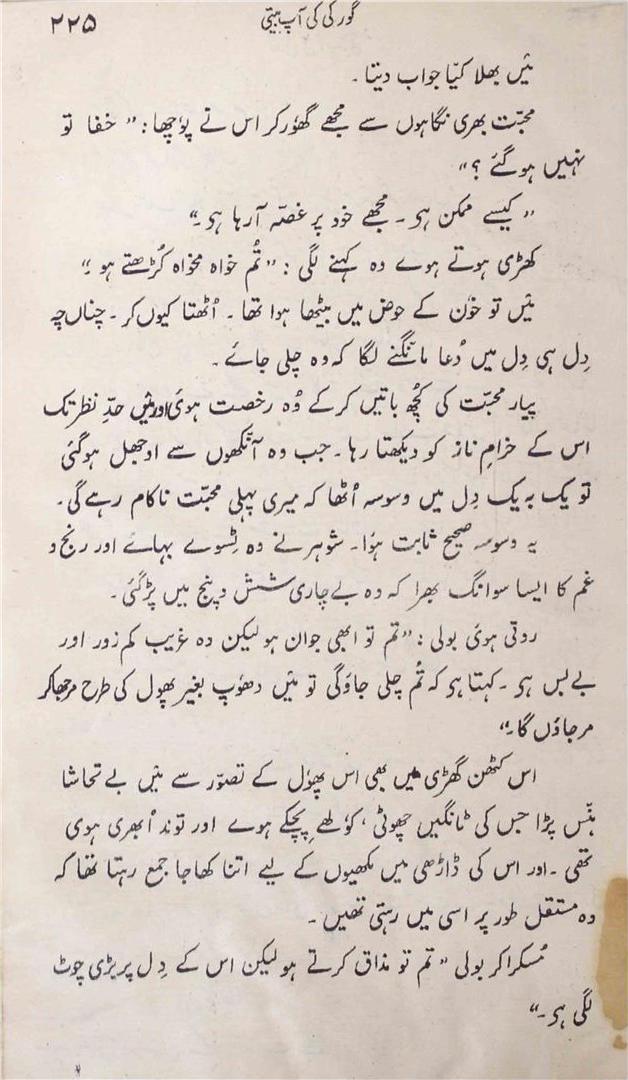 گورکی کی آپ بیتی
۲۲۵
مَیں بھلا کیا جواب دیتا۔
محبّت بھری نگاہوں سے مجھے گھوٗر کر اس نے پوٗچھا: ”خفا تو
نہیں ہوگئے؟“
”کیسے ممکن ہی۔ مجھے خود پر غصّہ آرہا ہی۔“
کھڑی ہوتے ہوے وہ کہنے لگی: ”تُم خواہ مخواہ کُڑھتے ہو۔“
مَیں تو خوٗن کے حوض میں بیٹھا ہوا تھا۔ اُٹھتا کیوں کر۔ چناں چہ
دِل ہی دِل میں دُعا مانگنے لگا کہ وہ چلی جائے۔
پیار محبّت کی کُچھ باتیں کرکے وُہ رخصت ہوئی اور مَیں حدِّ نظر تک
اس کے خرامِ ناز کو دیکھتا رہا۔ جب وہ آنکھوں سے اوجھل ہوگئی
تو یک بہ یک دِل میں وسوسہ اُٹھا کہ میری پہلی محبّت ناکام رہے گی۔
یہ وسوسہ صحیح ثابت ہوٗا۔ شوہر نے وہ ٹسوے بہائے اور رنج و
غم کا ایسا سوانگ بھرا کہ وہ بے چاری شش و پنج میں پڑگئی۔
روتی ہوئی بولی: ”تم تو ابھی جوان ہو لیکن وہ غریب کم زور اور
بے بس ہی۔ کہتا ہی کہ تُم چلی جاؤگی تو مَیں دھوٗپ بغیر پھول کی طرح مرجھاکر
مرجاؤں گا۔“
اس کٹھن گھڑی میں بھی اس پھوٗل کے تصوّر سے مَیں بے تحاشا
ہنس پڑا جس کی ٹانگیں چھوٹی، کوٗلھے پچکے ہوے اور توند اُبھری ہوی
تھی۔ اور اس کی ڈاڑھی میں مکھیوں کے لیے اتنا کھاجا جمع رہتا تھا کہ
وہ مستقل طور پر اسی میں رہتی تھیں۔
مُسکراکر بولی ”تم تو مذاق کرتے ہو لیکن اس کے دِل پر بڑی چوٹ
لگی ہی۔“